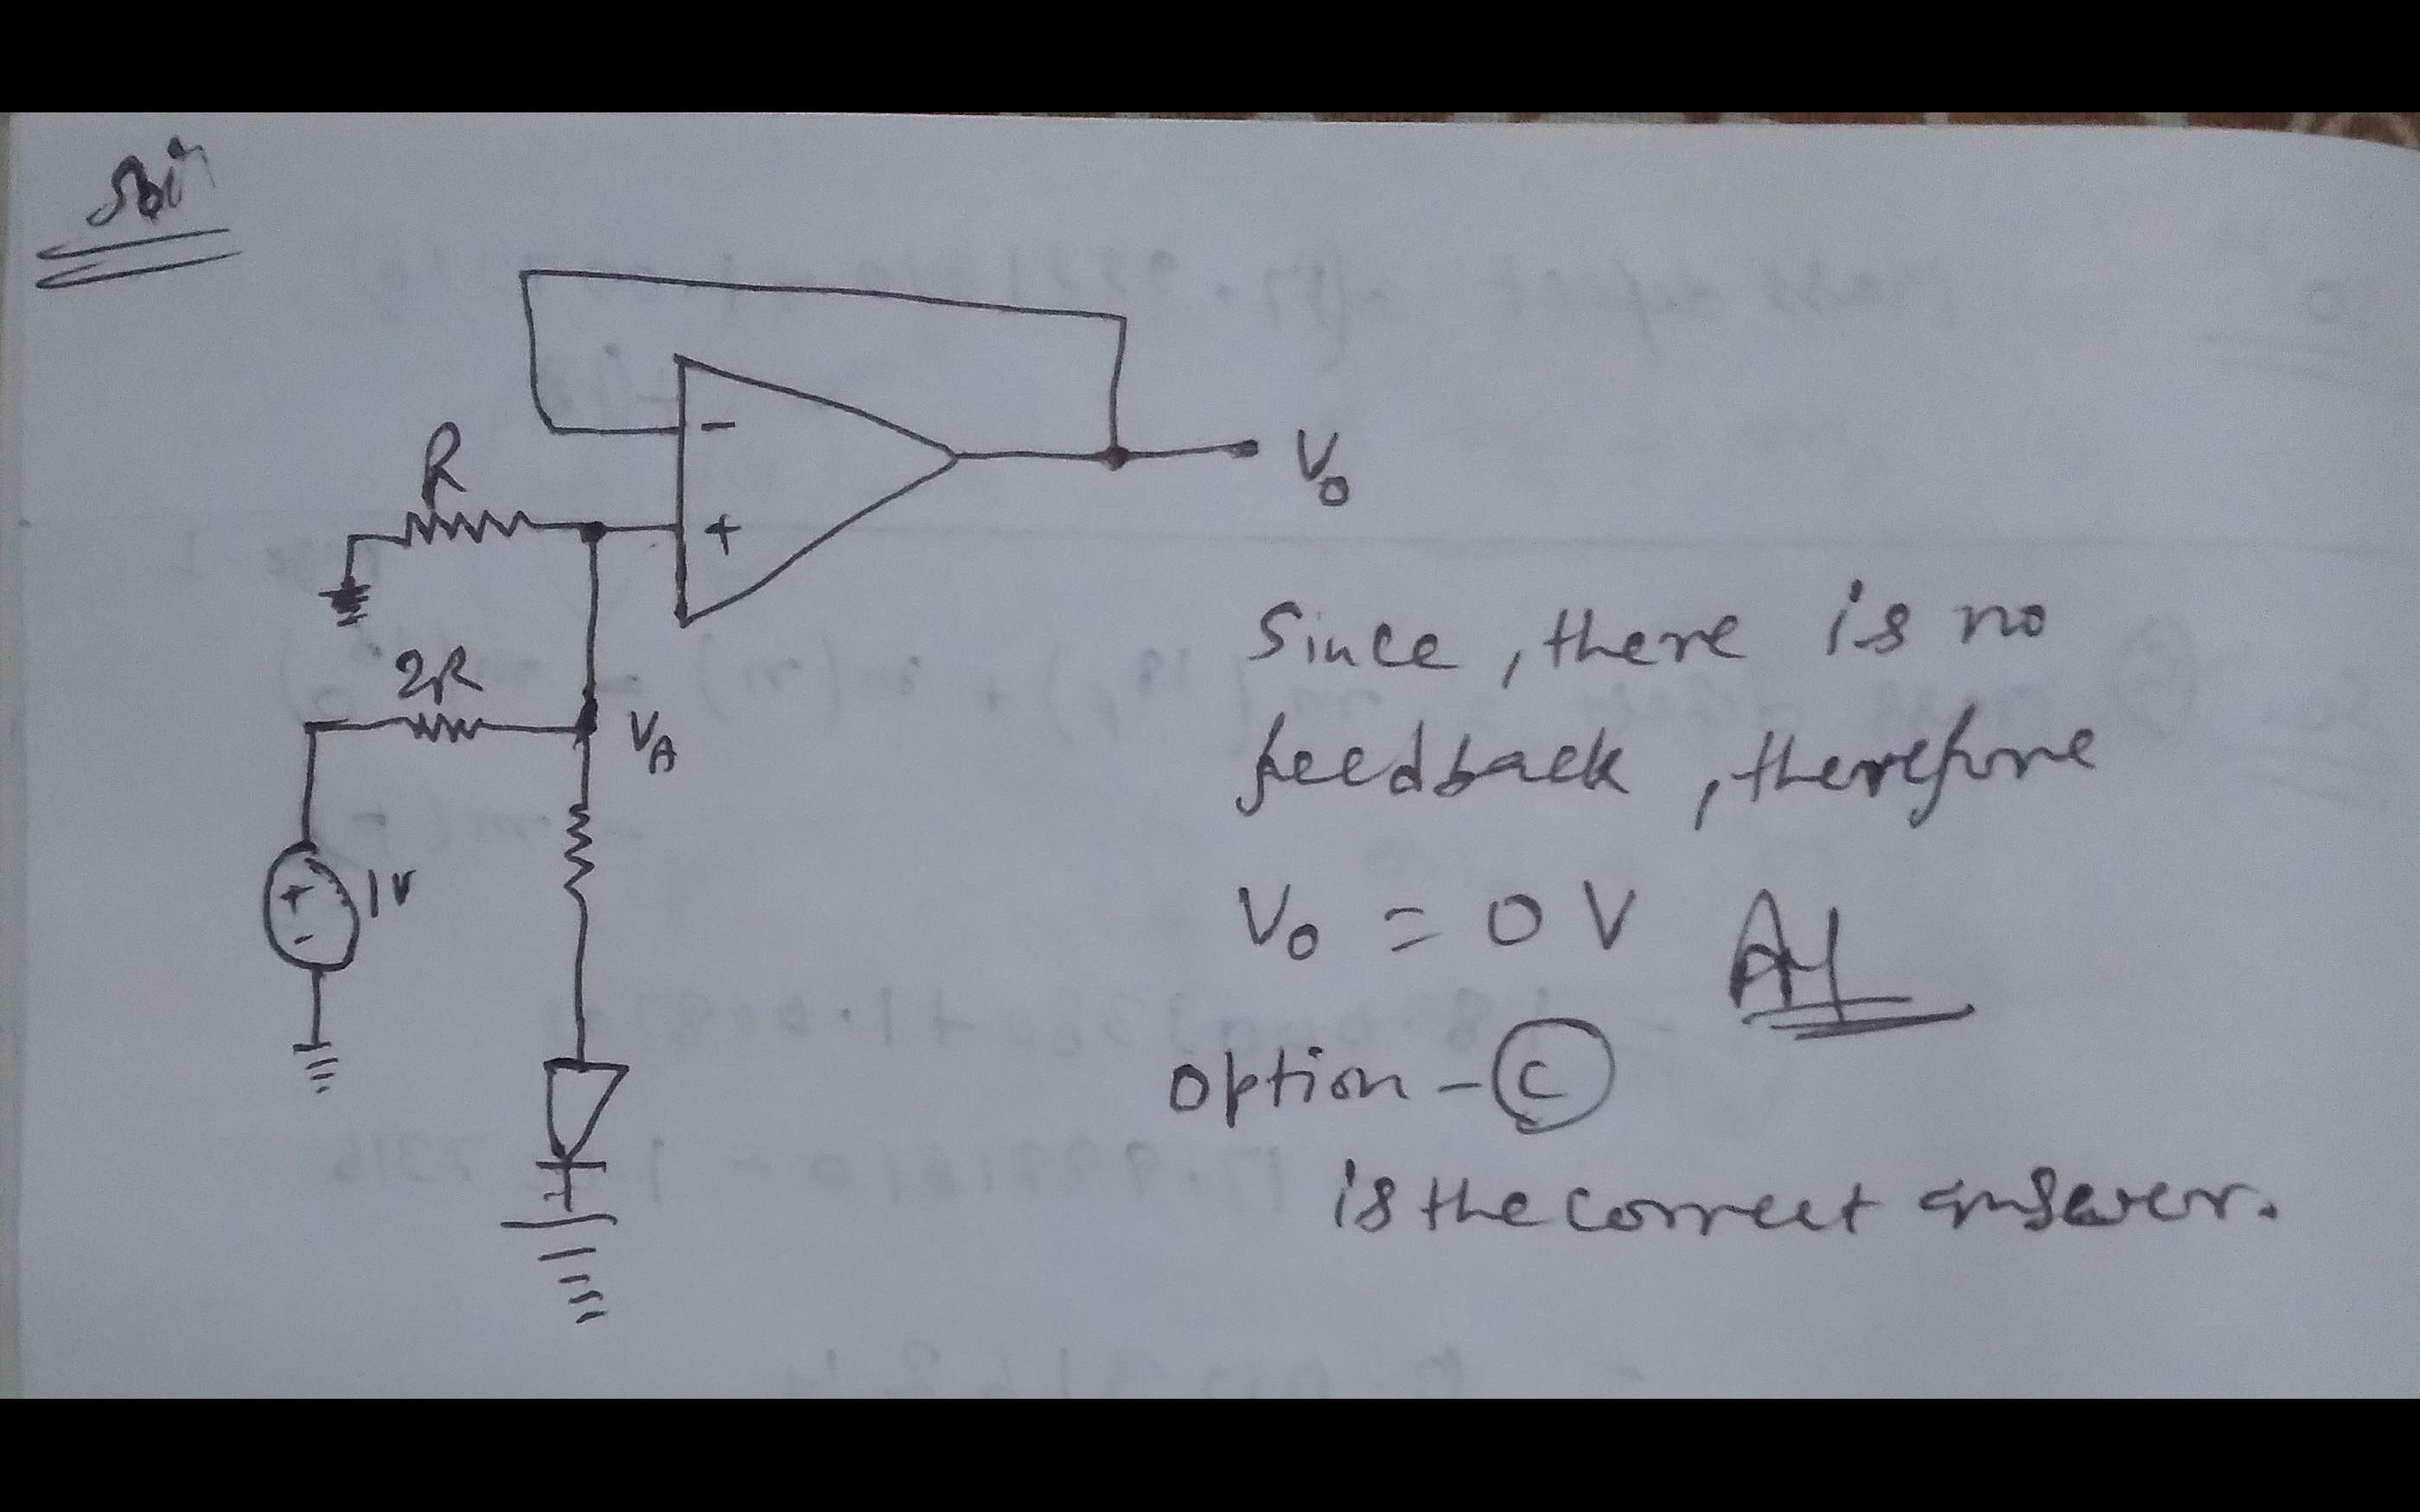 Soln
R
-
+
V0
2R
VA
+
-
1V
Since, there is no
feedback, therefore
V0 = 0 V
option - C
is the correct answer.